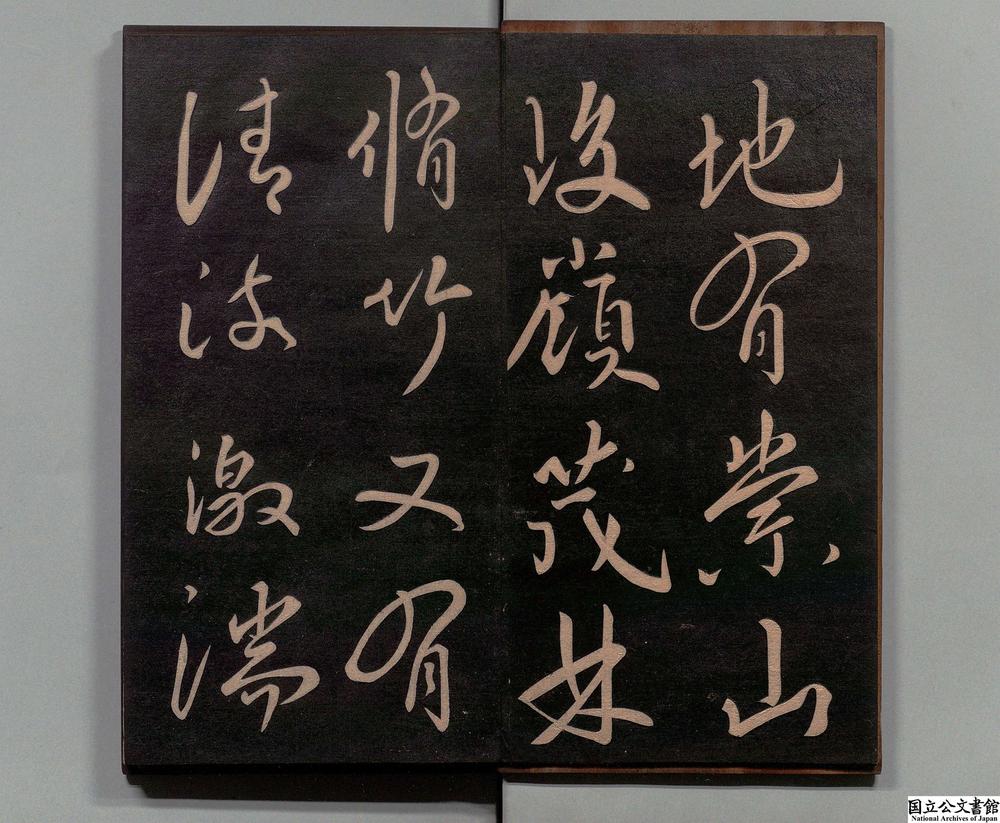 地有崇山
峻嶺茂林
脩竹又有
清流激湍
国立公文書館
National Archives of Japan